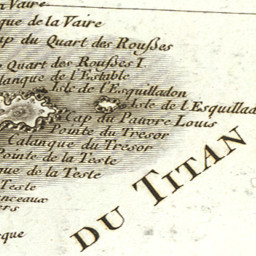 Vaire
que de la Vaire
ap du Quart des Rouſses
Quart des Rouſses I.
lanque de l'Estable
Isle de l'Esquilladon
Isle de l'Esquillad
Cap du Pauvre Louis
Pointe du Tresor
Calanque du Tresor
Pointe de la Teste
que de la Teste
Teste
anceaux
ers
eque
DU TITAN